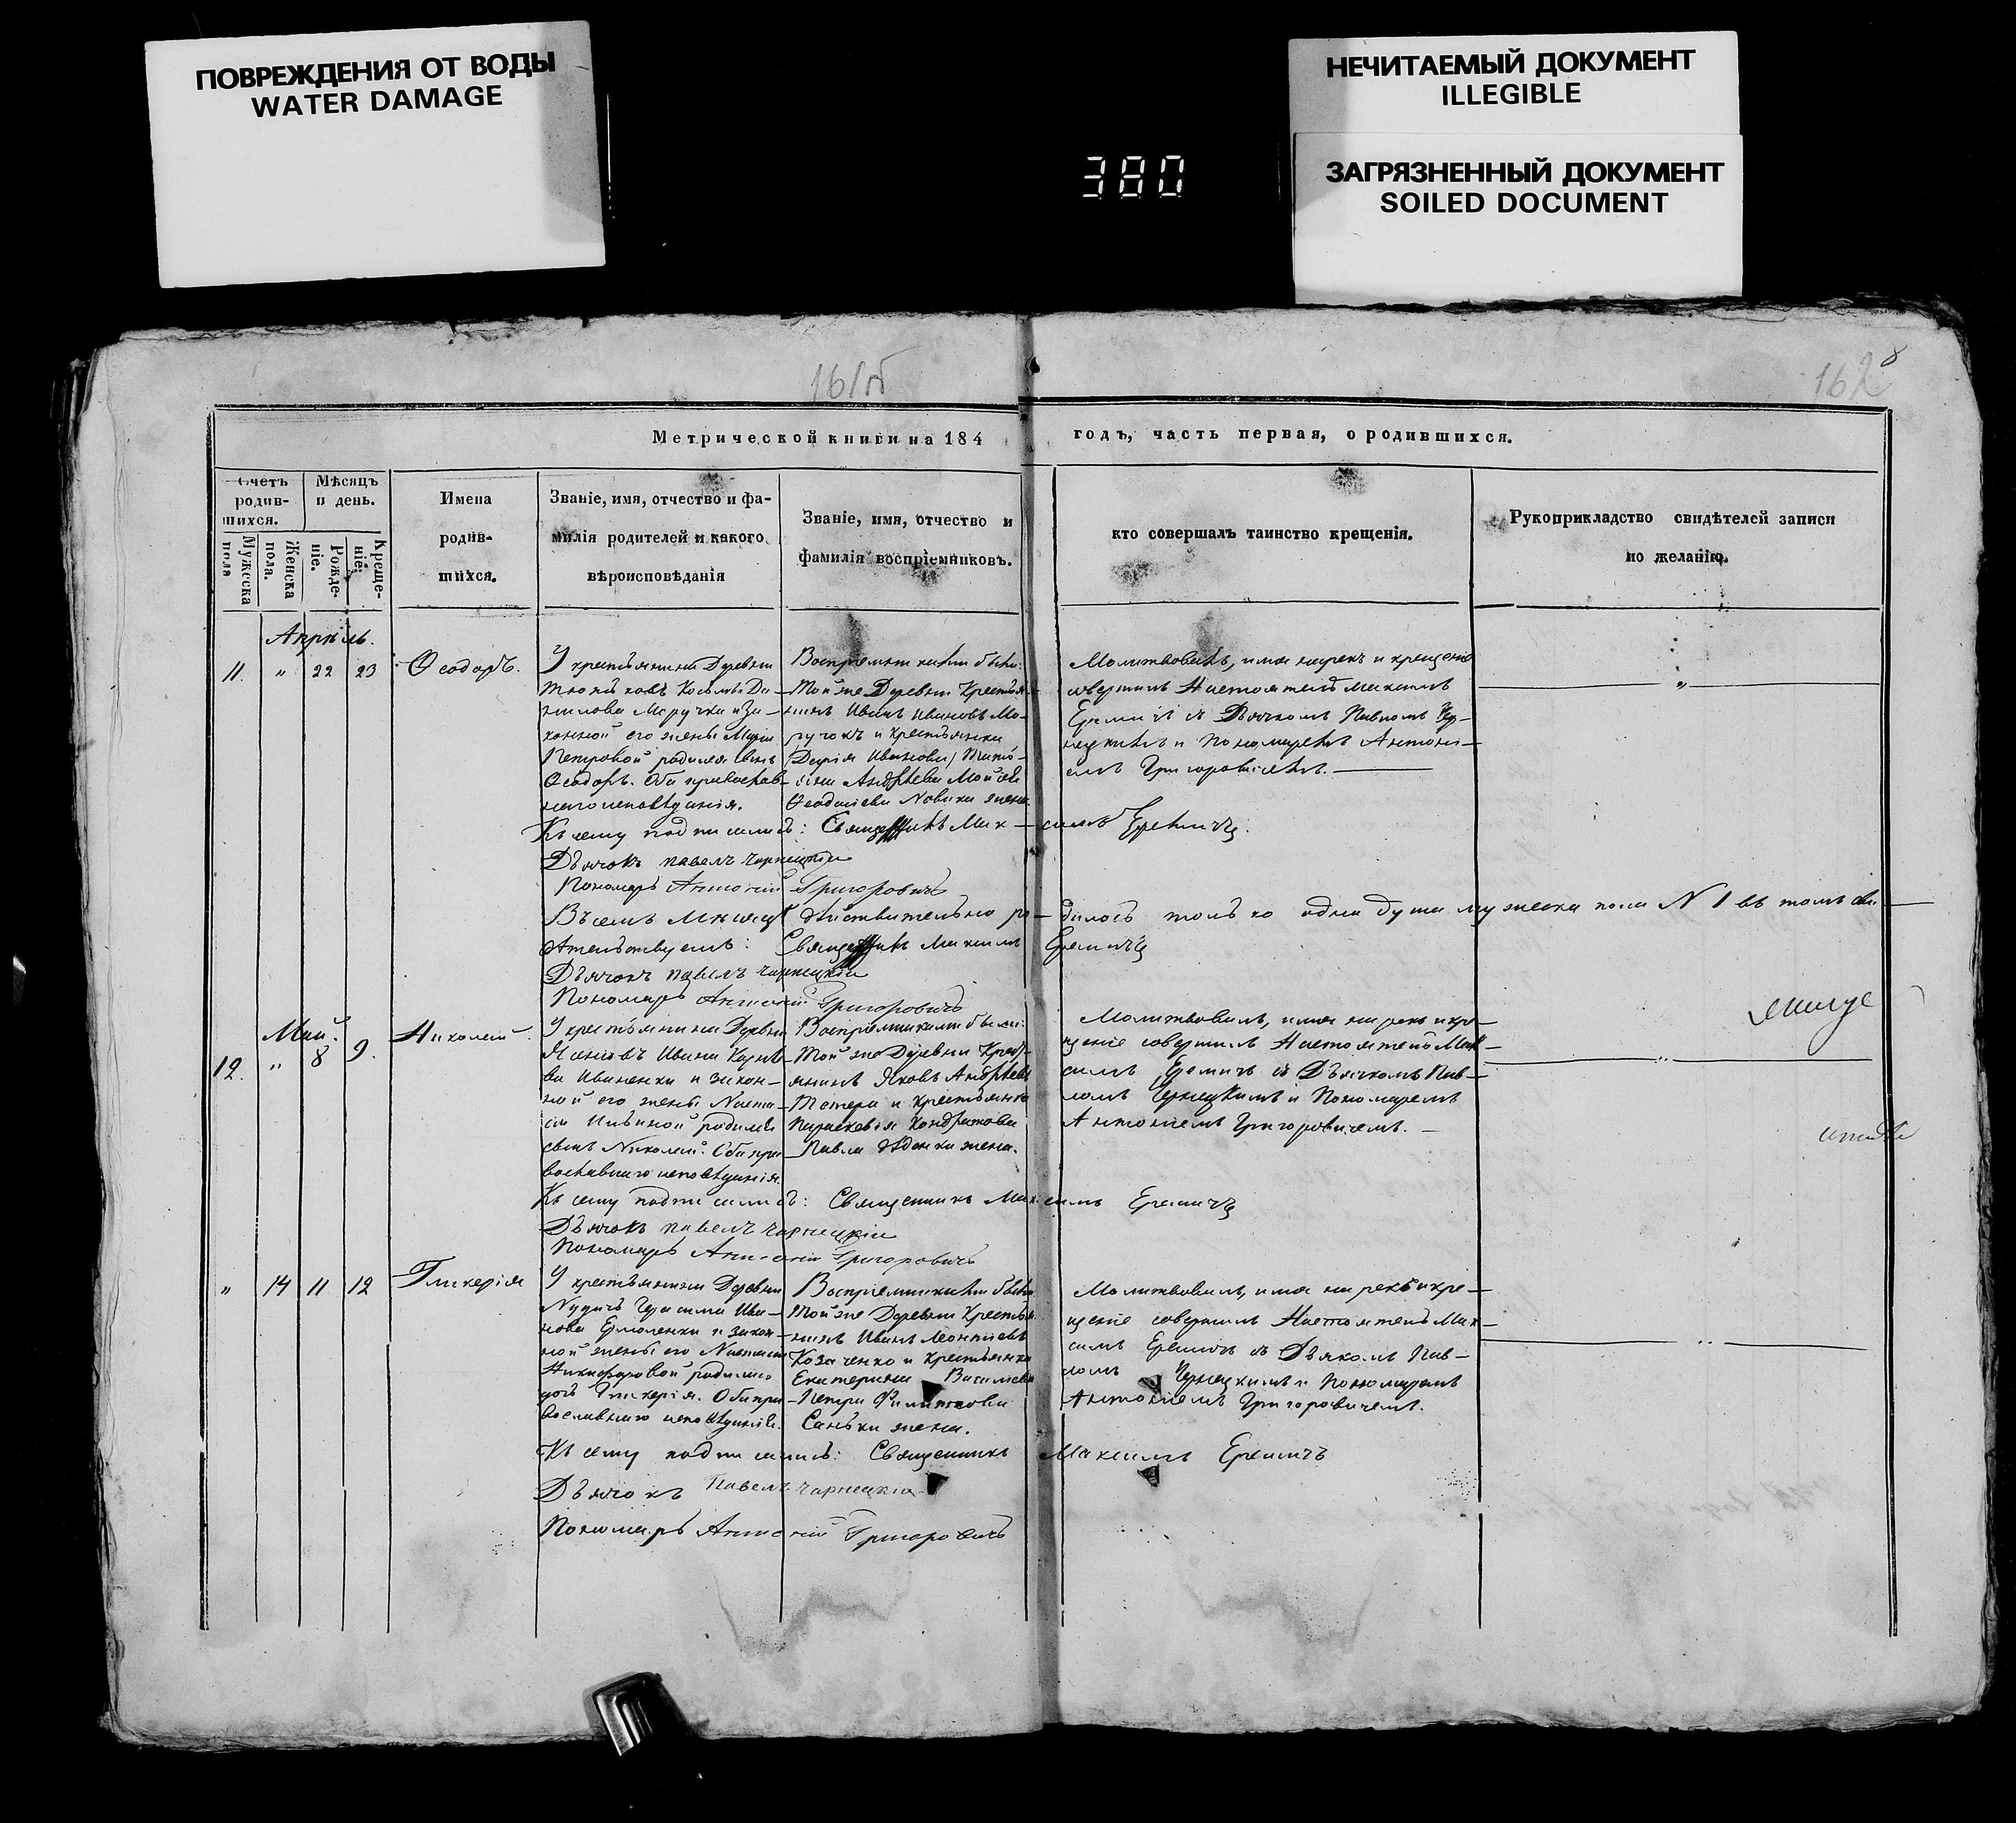 ПОВРЕЖДЕНИЯ ОТ ВОДЫ
WATER DAMAGE
НЕЧИТАЕМЫЙ ДОКУМЕНТ
ILLEGIBLE
ЗАГРЯЗНЕННЫЙ ДОКУМЕНТ
SOILED DOCUMENT
380
162
Метрической книги на 184 годъ, часть первая, о родившихся.
Счетъ родив-шихся.
Мужеска пола
Женска пола.
Мѣсяцъ и день.
Рожде-ніе.
Креще-ніе.
Имена
родив-
шихся.
Званіе, имя, отчество и фа-
милія родителей и какого
вѣроисповѣданія
Званіе, имя, отчество и
фамилія воспріемниковъ.
кто совершалъ таинство крещенія.
Рукоприкладство свидѣтелей записи
по желанію.
Апрѣль.
11. " 22 23
Ѳеодоръ.
У крестьянина Деревни
Косьмы Да-
нилова Маручка и за-
конной его жены Марiи
Петровой родился сынъ
Ѳеодоръ. Оба православ-
наго исповѣданiя.
Воспрiемниками были:
Той же Деревни Крестья-
нинъ Иванъ Ивановъ Ма-
ручокъ и крестьянка
Дарiя Иванова
Андрѣева Мойсея
Ѳеодосiева Новика жена
Молитвовалъ, имя нарекъ и крещенiе
совершилъ Настоятель Максимъ
Еремичъ съ Дьячкомъ Павломъ Чер-
нецкимъ и Пономаремъ Антонi-
емъ Григоровичемъ.
Къ сему подписались: Священникъ Максимъ Еремичъ
Дьячокъ павелъ Чарнецкiи
Пономарь Антонiй Григоровичъ
Въ семъ Мѣсяцѣ действительно родилось только одна душа мужеска пола N 1 въ томъ сви-
дѣтельствуемъ: Священникъ Максимъ Еремичъ
Дьячокъ павелъ Чарнецкiи
Пономарь Антонiй Григоровичъ
Май.
12. " 8 9.
Николай
У крестьянина Деревни
Ивана Карнѣ-
ва Иваненки и закон-
ной его жены Наста-
сiи Ильиной родился
сынъ Николай. Оба пра-
вославнаго исповѣданiя.
Воспрiемниками были:
Той же Деревни Кресть-
янинъ Яковъ Андрѣевъ
и крестьянка
Параскевiя Кондратова
Павла жена.
Молитвовалъ, имя нарекъ и кре-
щенiе совершилъ Настоятель Мак-
симъ Еремичъ съ Дьячкомъ Пав-
ломъ Чернецкимъ и Пономаремъ
Антонiемъ Григоровичемъ.
Къ сему подписались: Священникъ Максимъ Еремичъ
Дьячокъ павелъ Чарнецкiи
Пономарь Антонiй Григоровичъ
" 14 11 12
Гликерiя
У крестьянина Деревни
Нудичъ Герасима Ива-
нова Ермоленки и закон-
ной жены его Настасiи
Никифоровой родилась
дочь Гликерiя. Оба пра-
вославнаго исповѣданiя.
Воспрiемниками были
Той же Деревни Крестья-
нинъ Иванъ Леонтiевъ
Козаченко и крестьянка
Екатерина Василiева
Петра Филиппова
Санъки жена.
Молитвовалъ, имя нарекъ и кре-
щенiе совершилъ Настоятель Мак-
симъ Еремичъ съ Дьякомъ Пав-
ломъ Чернецкимъ и Пономаремъ
Антонiемъ Григоровичемъ.
Къ сему подписались: Священникъ Максимъ Еремичъ
Дьячокъ Павелъ Чарнецкiи
Пономарь Антонiй Григоровичъ